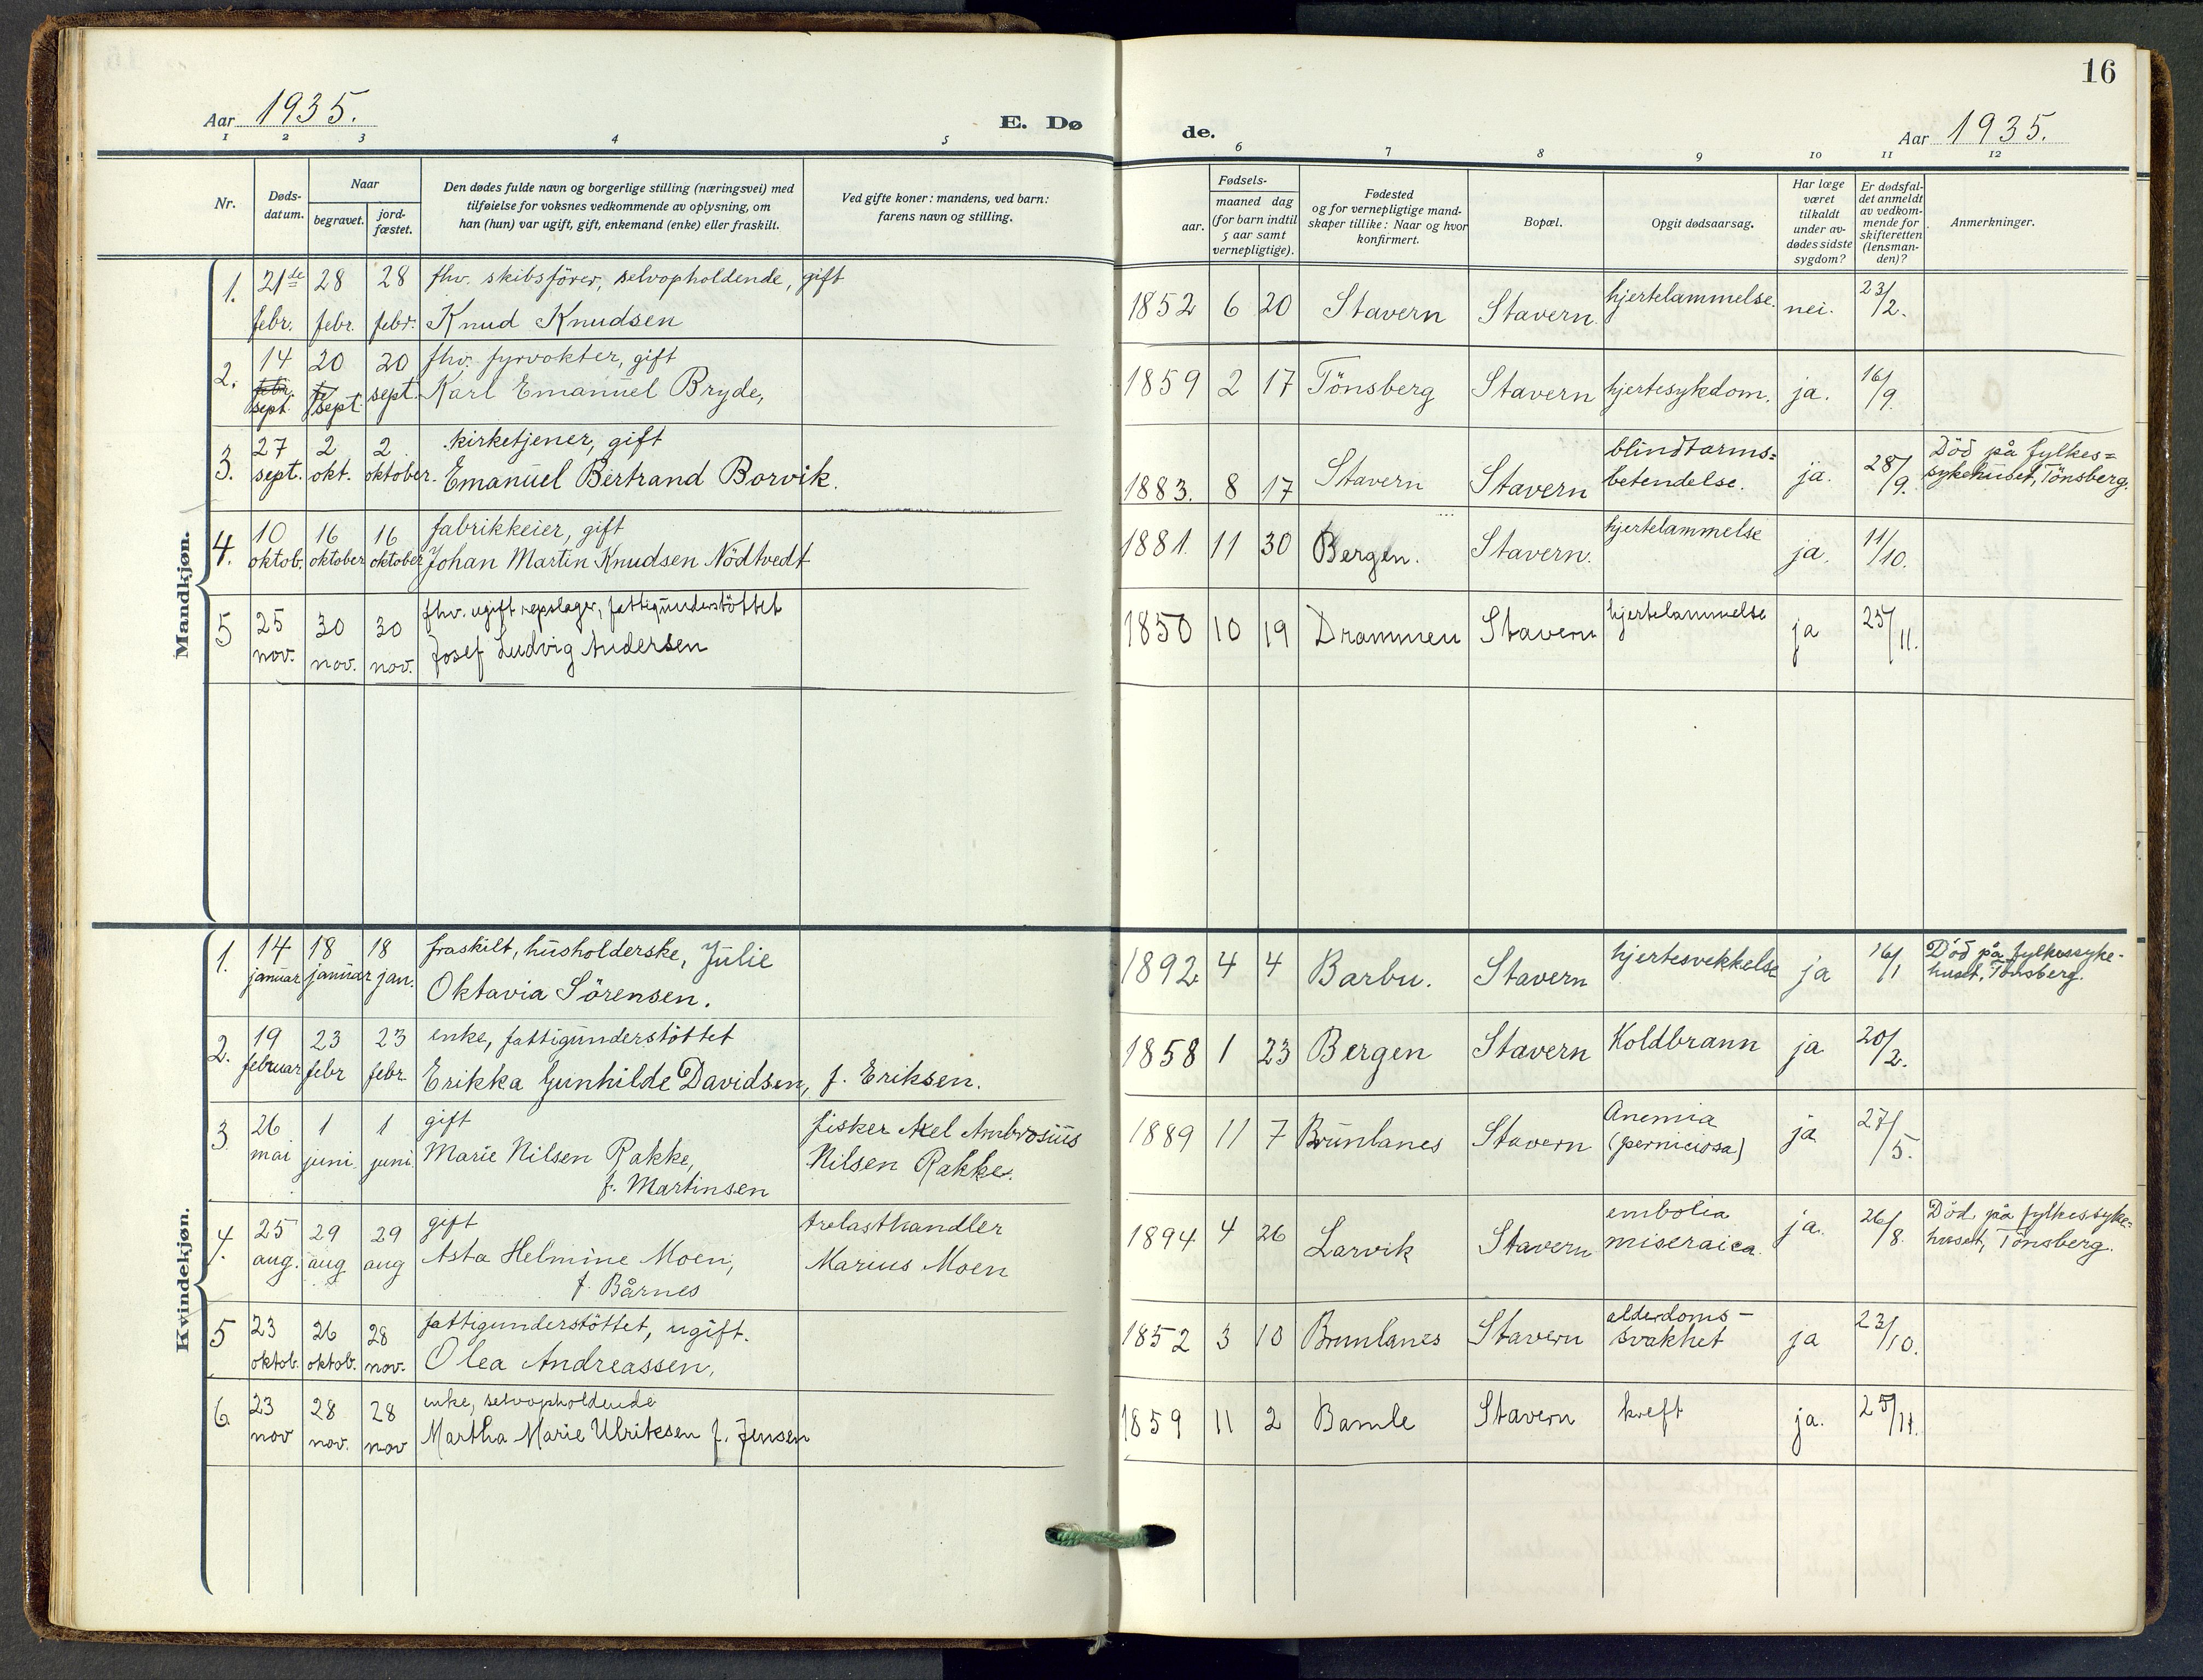 16
Aar 1935.
E. Dø
de.
Aar 1935.
1 2 3 4 5
6 7 8 9 10 11 12
Nr.
Døds-
datum.
Naar
begravet.
jord-
fæstet.
Den dødes fulde navn og borgerlige stilling (næringsvei) med
tilføielse for voksnes vedkommende av oplysning, om
han (hun) var ugift, gift, enkemand (enke) eller fraskilt.
Ved gifte koner: mandens, ved barn:
farens navn og stilling.
Fødsels-
aar.
maaned dag
(for barn indtil
5 aar samt
vernepligtige).
Fødested
og for vernepligtige mand-
skaper tillike: Naar og hvor
konfirmert.
Bopæl.
Opgit dødsaarsag.
Har læge
været
tilkaldt
under av-
dødes sidste
sygdom?
Er dødsfal-
det anmeldt
av vedkom-
mende for
skifteretten
(lensman-
den)?
Anmerkninger.
Mandkjøn.
1. 21de 28 28 fhv. skibsförer, selvopholdende, gift
febr. febr. febr. Knud Knudsen
1852 6 20 Stavern Stavern hjertelammelse. nei. 23/2.
2. 14 20 20 fhv. fyrvokter, gift
febr. sept. sept. sept. Karl Emanuel Bryde,
1859 2 17 Tönsberg Stavern hjertesykdom. ja. 16/9.
3. 27 2 2 kirketjener, gift
sept. okt. oktober. Emanuel Bertrand Borvik.
1883. 8 17 Stavern Stavern blindtarms=
betendelse. ja. 28/9. Död på fylkes=
sykehuset, Tönsberg.
4. 10 16 16 fabrikkeier, gift
oktob. oktober oktober Johan Martin Knudsen Nödtvedt
1881. 11 30 Bergen. Stavern. hjertelammelse ja. 11/10.
5 25 30 30 fhv. ugift repslager, fattigunderstöttet
nov. nov. nov. Josef Ludvig Andersen
1850 10 19 Drammen Stavern hjertelammelse ja 25/11.
Kvindekjøn.
1. 14 18 18 fraskilt, husholderske, Julie
januar januar jan. Oktavia Sörensen.
1892 4 4 Barbu. Stavern hjertesvekkelse ja 16/1 Död på fylkessyke-
huset, Tönsberg.
2. 19 23 23 enke, fattigunderstöttet
februar febr febr. Erikka Gunhilde Davidsen, f. Eriksen.
1858 1 23 Bergen Stavern Koldbrann ja 20/2.
3 26 1 1 gift fisker Axel Ambrosius
mai juni. juni. Marie Nilsen Rakke, Nilsen Rakke.
f. Martinsen
1889 11 7 Brunlanes Stavern Anemia
(perniciosa) ja 27/5.
4. 25 29 29 gift trelasthandler
aug. aug aug Asta Helmine Moen, Marius Moen
f. Bårnes
1894 4 26 Larvik Stavern embolia
miseraica. ja. 26/8. Död på fylkessyke=
huset, Tönsberg.
5 23 26 28 fattigunderstöttet, ugift.
oktob. oktob. nov. Olea Andreassen,
1852 3 10 Brunlanes Stavern alderdoms-
svakhet ja 23/10.
6. 23 28 28 enke, selvopholdende
nov nov. nov Martha Marie Ulriksen f. Jensen
1859 11 2 Bamle Stavern kreft ja. 25/11.